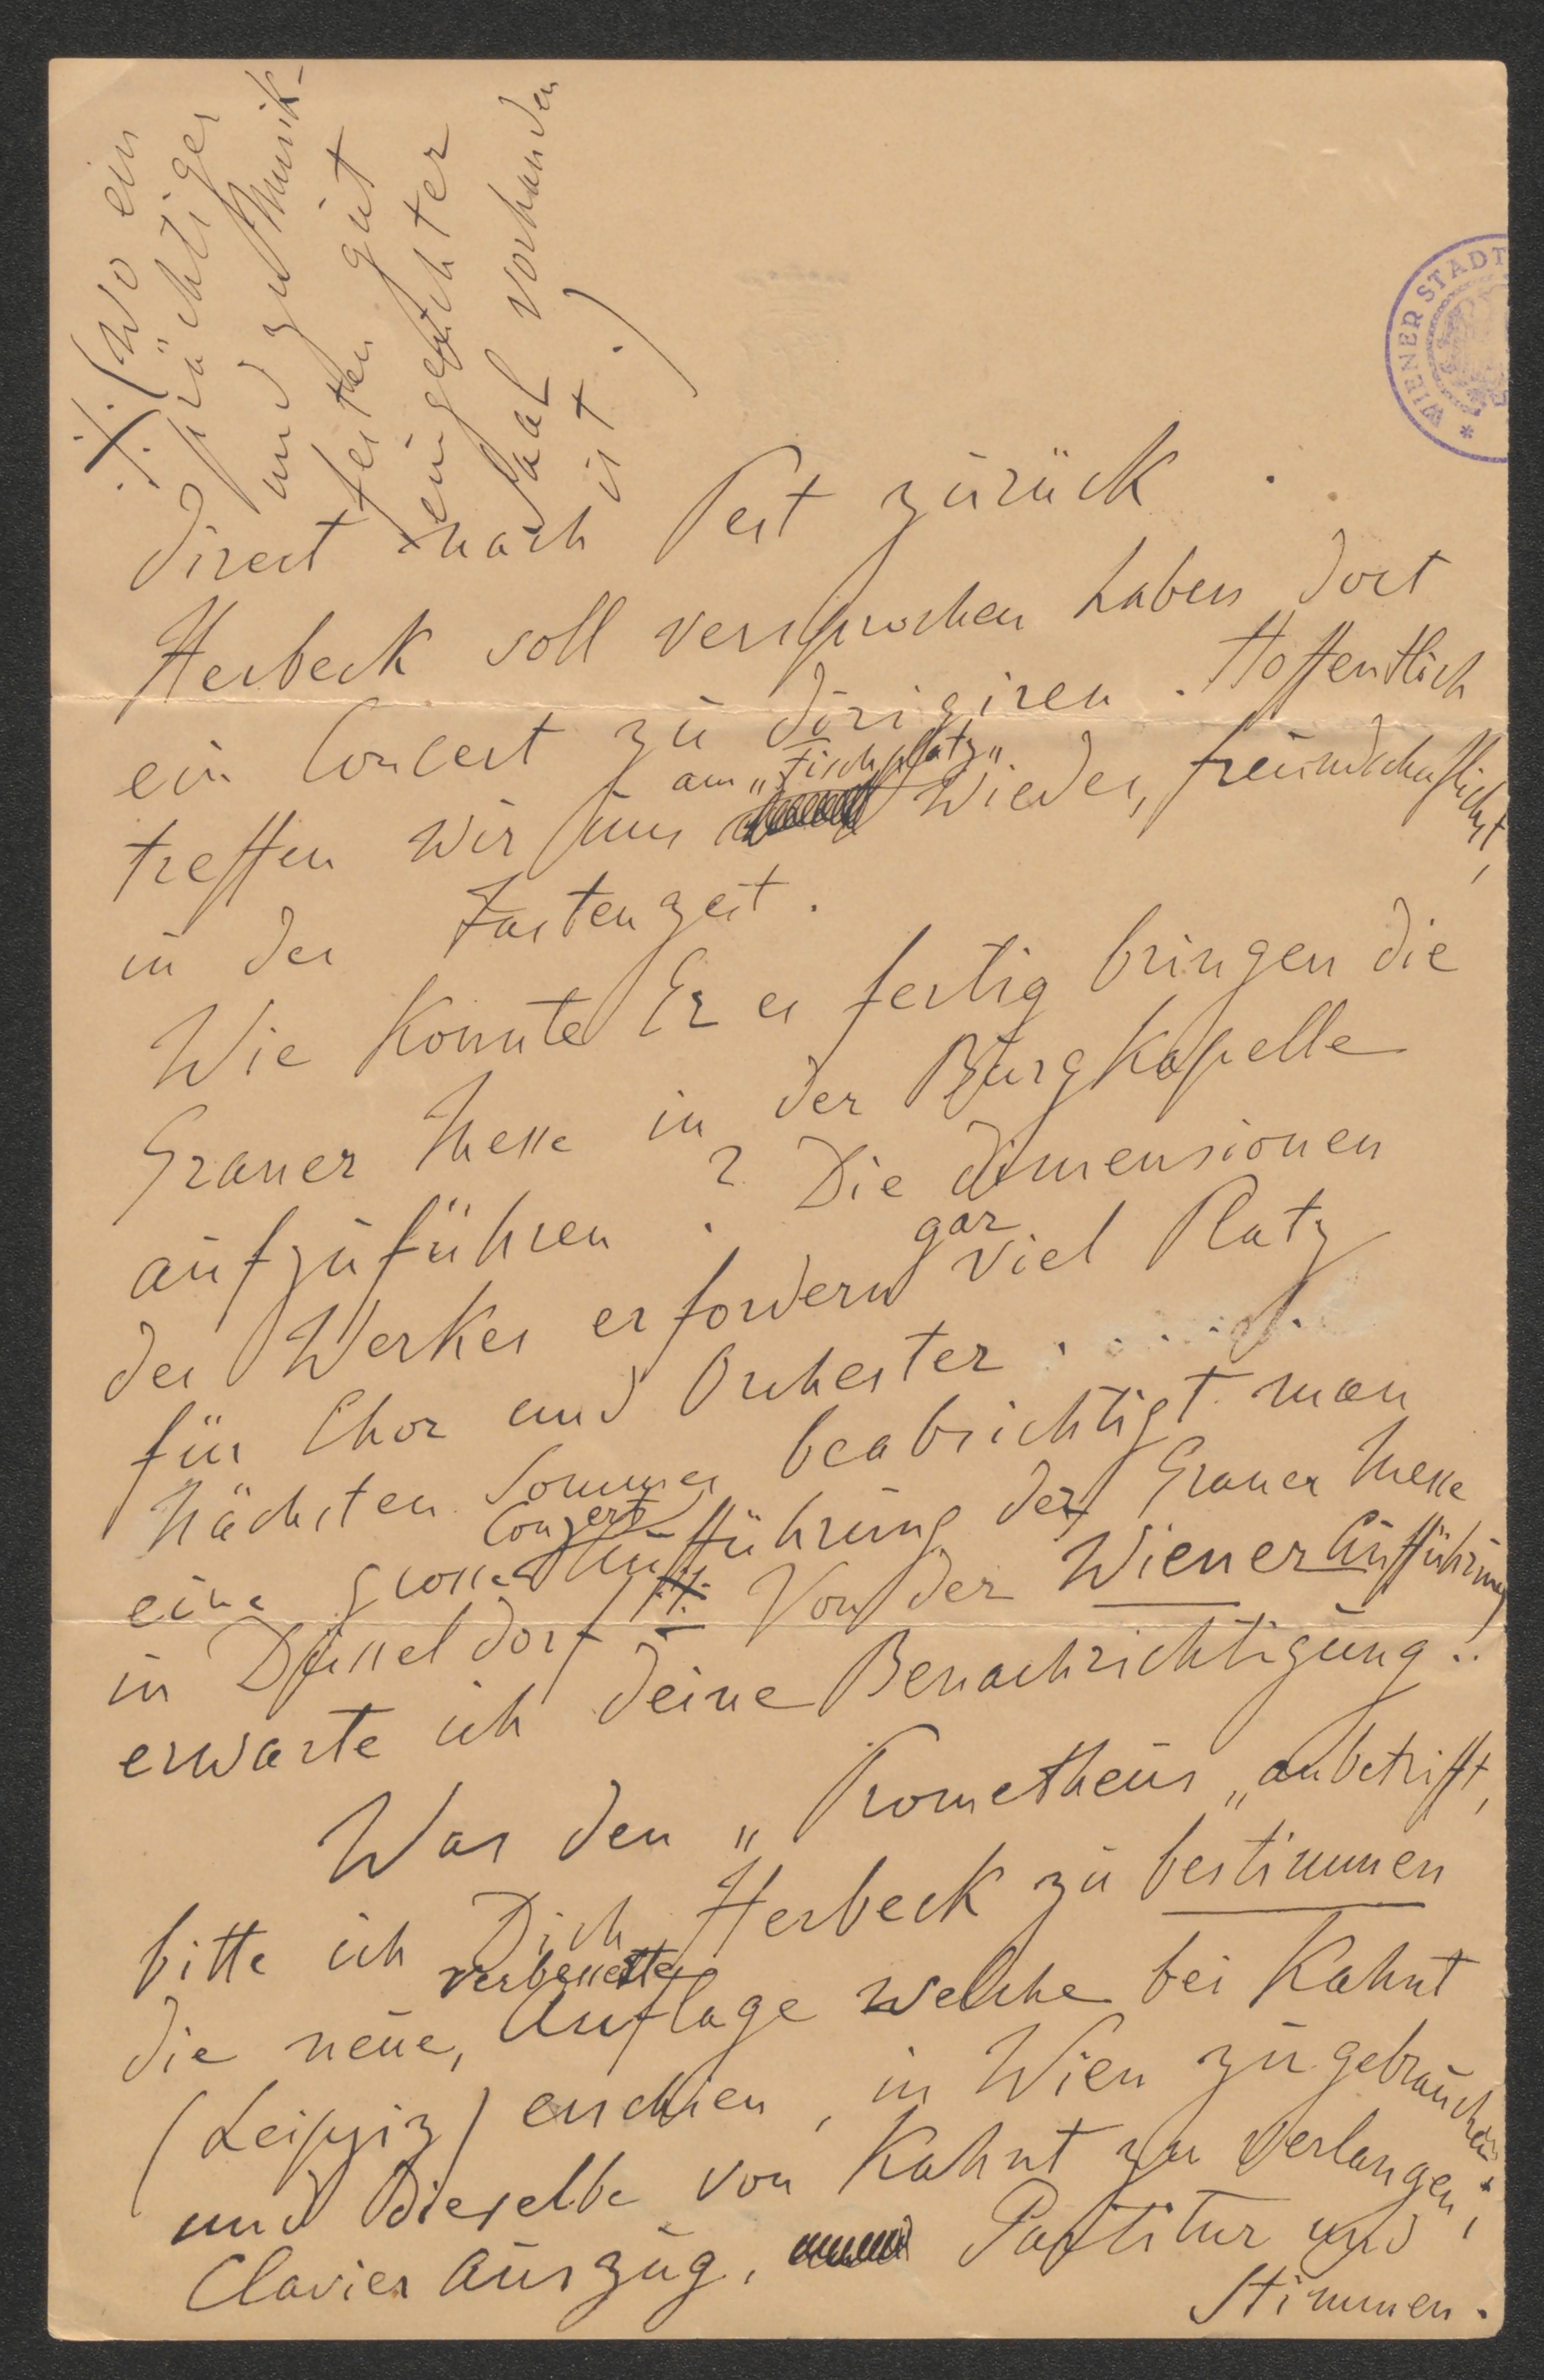 ·/· (wo ein
prächtiger
und zu Musik-
festen gut
eingerichter
Saal vorhanden
ist.)
WIENER STADT
direct nach Pest zurück.
Herbeck soll versprochen haben dort
ein Concert zu dirigiren. Hoffentlich
treffen wir uns am „Fischplatz„ wieder, freundschaftlichst,
in der Fastenzeit.
Wie konnte Er es fertig bringen die
Graner Messe in der Burgkapelle
aufzuführen? Die Dimensionen
des Werkes erfordern gar viel Platz
für Chor und Orchester......
Nächsten Sommer beabsichtigt man
eine grosse Conzert Aufführung der Graner Messe
in Düsseldorf ·/· Von der Wiener Aufführung
erwarte ich deine Benachrichtigung.
Was den „Prometheus„ anbetrifft,
bitte ich Dich, Herbeck zu bestimmen
die neue, verbesserte Auflage welche bei Kahnt
(Leipzig) erschien, in Wien zu gebrauchen;
und Dieselbe von Kahnt zu verlangen,
Clavier Auszug, Partitur und
Stimmen.